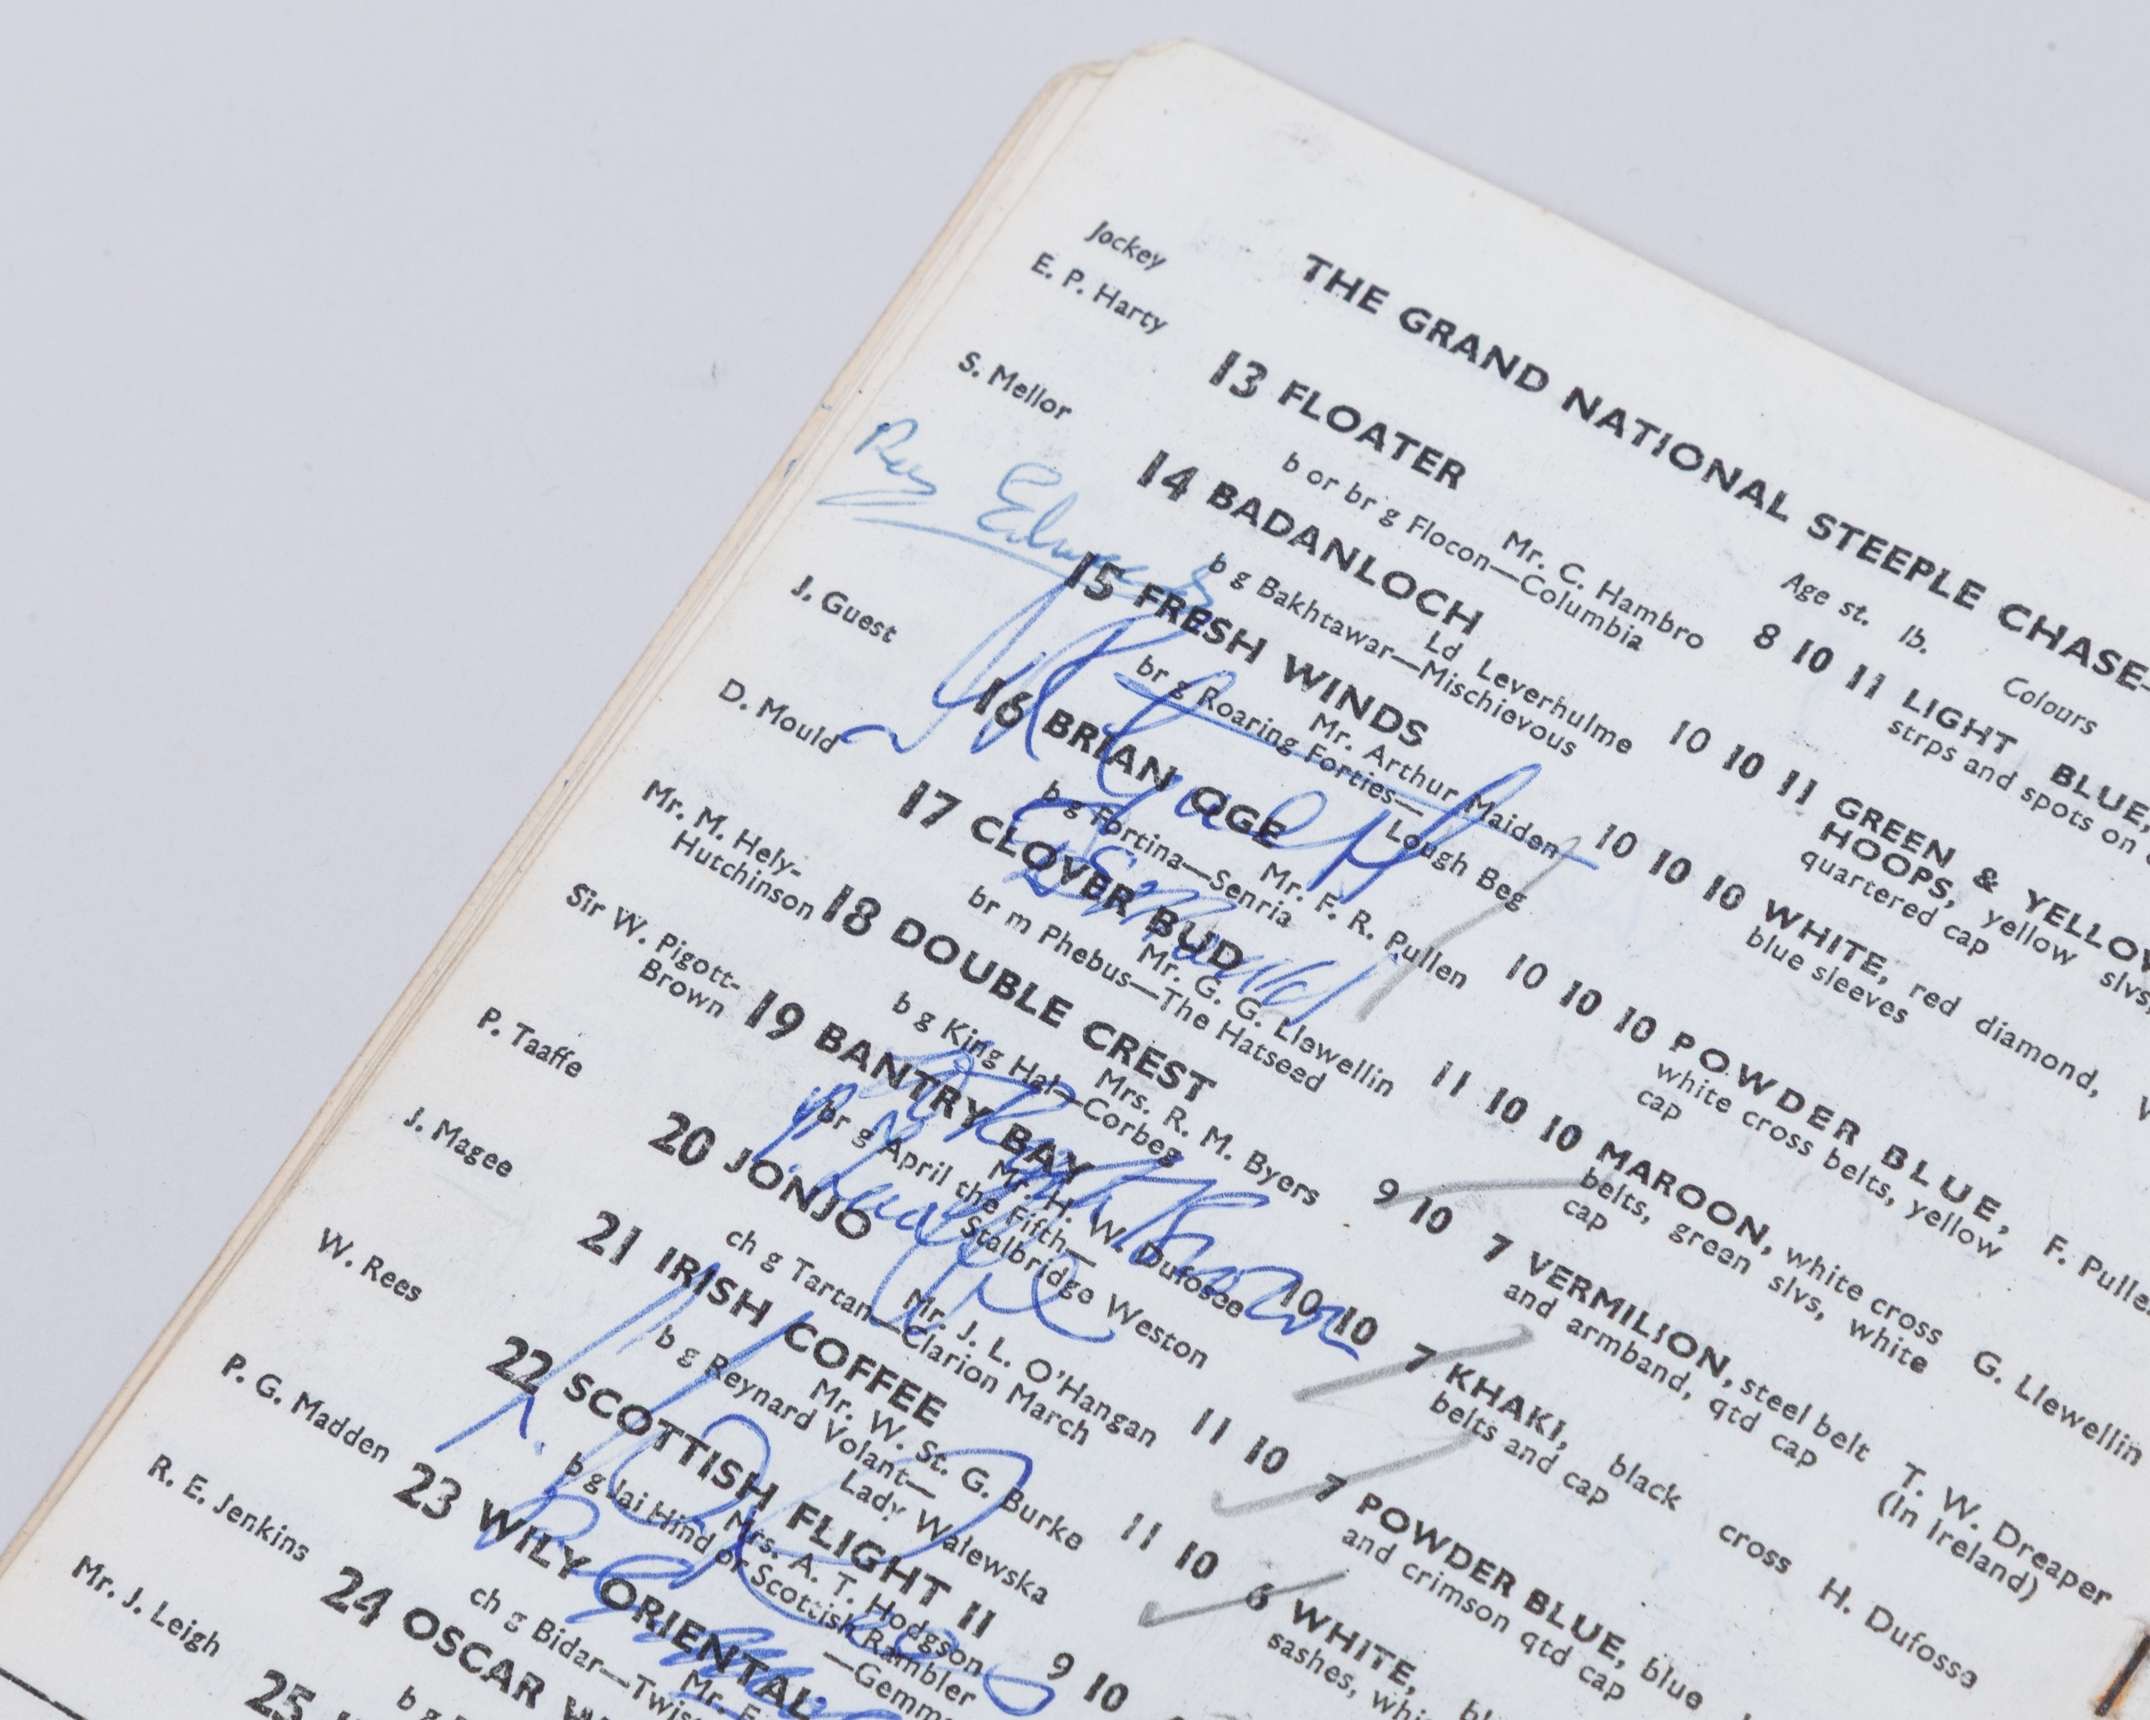 THE GRAND NATIONAL STEEPLE CHASE—
Jockey Age st. lb. Colours
E. P. Harty 13 FLOATER Mr. C. Hambro 8 10 11 LIGHT BLUE,
b or br g Flocon—Columbia strps and spots on
S. Mellor 14 BADANLOCH Ld Leverhulme 10 10 11 GREEN & YELLOW
b g Bakhtawar—Mischievous HOOPS, yellow slvs,
quartered cap
Ray Edwards
15 FRESH WINDS Mr. Arthur Maiden 10 10 10 WHITE, red diamond,
br g Roaring Forties— blue sleeves
Lough Beg
J. Guest 16 BRIAN OGE Mr. F. R. Pullen 10 10 10 POWDER BLUE, F. Pullen
b g Fortina—Senria white cross belts, yellow
cap
D. Mould 17 CLOVER BUD Mr. G. G. Llewellin 11 10 10 MAROON, white cross G. Llewellin
br m Phebus—The Hatseed belts, green slvs, white
cap
Mr. M. Hely-
Hutchinson 18 DOUBLE CREST Mrs. R. M. Byers 9 10 7 VERMILION, steel belt T. W. Dreaper
b g King Hal—Corbeg and armband, qtd cap (In Ireland)
Sir W. Pigott-
Brown 19 BANTRY BAY Mr. H. W. Dufosee 10 10 7 KHAKI, black cross H. Dufosse
br g April the Fifth— belts and cap
Stalbridge Weston
P. Taaffe 20 JONJO Mr. J. L. O'Hangan 11 10 7 POWDER BLUE, blue
ch g Tartan—Clarion March and crimson qtd cap
J. Magee 21 IRISH COFFEE Mr. W. St. G. Burke 11 10 6 WHITE,
b g Reynard Volant— sashes,
Lady Walewska
W. Rees 22 SCOTTISH FLIGHT II Mrs. A. T. Hodgson 9 10
b g Jai Hind or Scottish Rambler
P. G. Madden 23 WILY ORIENTAL Mr.
ch g Bidar—
R. E. Jenkins 24 OSCAR
b g
Mr. J. Leigh 25